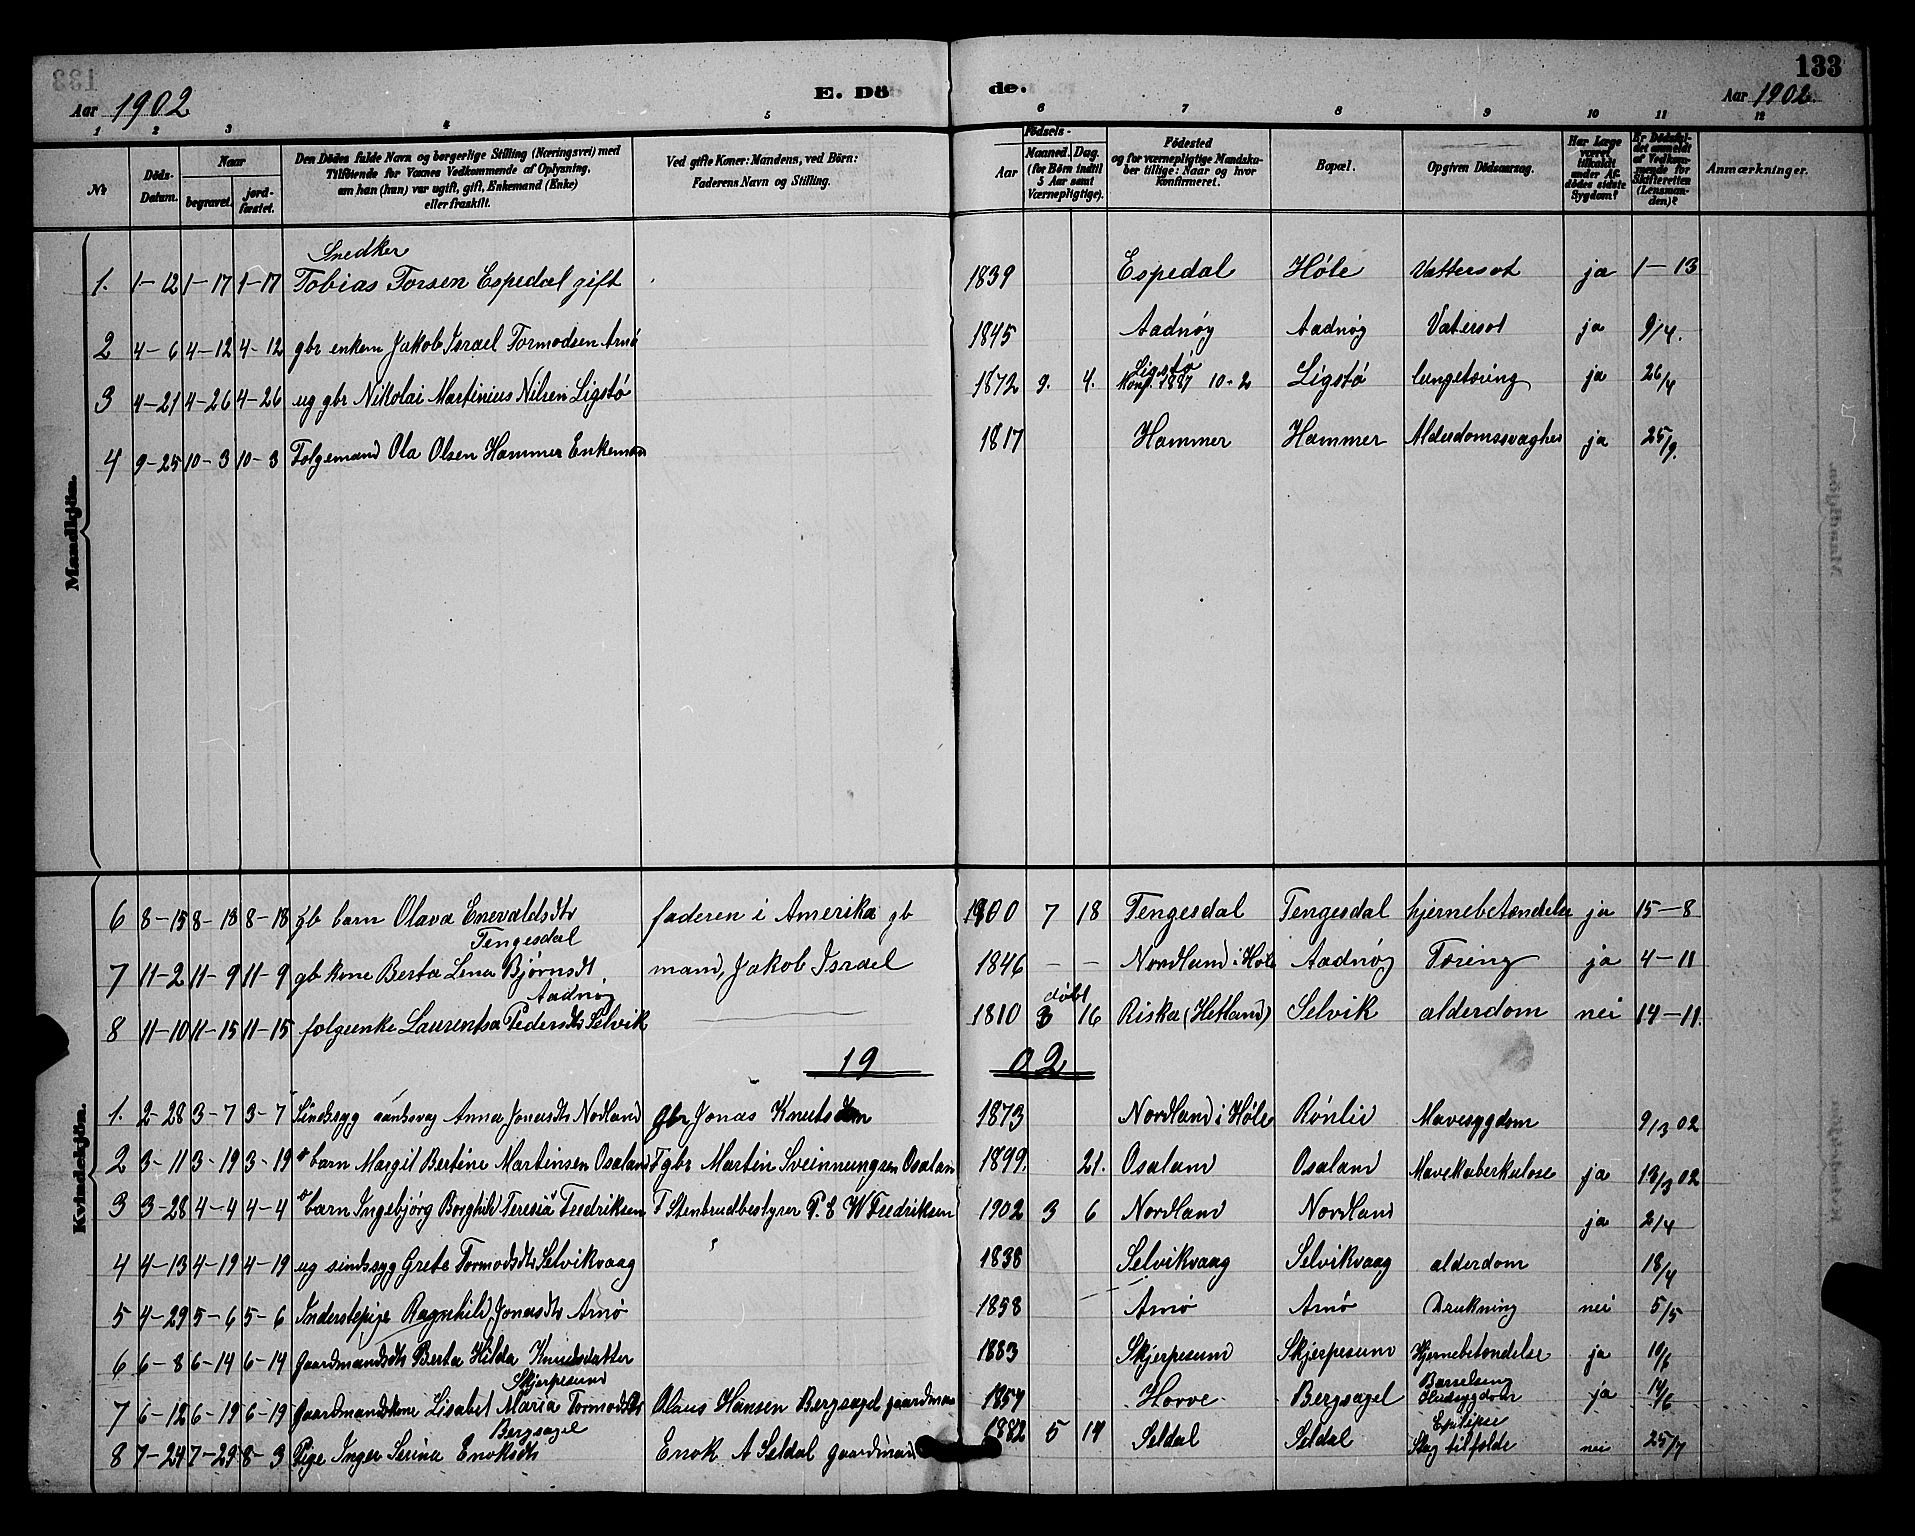 133
Aar 1902
E. Dö de.
Aar 1902.
1 2 3 4 5 6 7 8 9 10 11 12
№ Döds-Datum. Naar begravet. jord-fæstet. Den Dödes fulde Navn og borgerlige Stilling (Næringsvei) med Tilföiende for Voxnes Vedkommende af Oplysning, om han (hun) var ugift, gift, Enkemand (Enke) eller fraskilt. Ved gifte Koner: Mandens, ved Börn: Faderens Navn og Stilling. Födsels- Aar Maaned. Dag. (for Börn indtil 5 Aar samt Værnepligtige). Födested og for værnepligtige Mandska-ber tillige: Naar og hvor Konfirmeret. Bopæl. Opgiven Dödsaarsag. Har Læge været tilkaldt under Af-dödes sidste Sygdom? Er Dödsfal-det anmeldt af Vedkom-mende for Skifteretten (Lensman-den)? Anmærkninger.
Mandkjön.
Snedker
1. 1-12 1-17 1-17 Tobias Torsen Espedal gift 1839 Espedal Høle Vattersot ja 1-13
2 4-6 4-12 4-12 gbr enkem Jakob Israel Tormodsen Arnø 1845 Aadnøy Aadnøy Vatersot ja 9/4.
3 4-21 4-26 4-26 ug gbr Nikolai Martinius Nilsen Ligstø 1872 9. 4. Ligstø Konf 1887 10-2 Ligstø lungetæring ja 26/4
4 9-25 10-3 10-3 Folgemand Ola Olsen Hammer Enkeman 1817 Hammer Hammer Alderdomssvaghed ja 25/9.
Kvindekjön.
6 8-15 8-18 8-18 gb barn Olava Enevaldsdtr Tengesdal faderen i Amerika gb 1900 7 18 Tengesdal Tengesdal hjernebetændelse ja 15-8
7 11-2 11-9 11-9 gb kone Berta Lena Bjørnsdt. Aadnøy mand, Jakob Israel 1846 - - Nordland i Høle Aadnøy Tæring ja 4-11
8 11-10 11-15 11-15 folgeenke Laurentsa Pedersdtr Selvik 1810 døbt 3 16 Riska (Hetland) Selvik alderdom nei 14-11.
19 02
1. 2-28 3-7 3-7 Sindssyg aandsvag Anna Jonasdtr Nordland Gbr Jonas Knutsen 1873 Nordland i Høle Rønlid Mavesygdom 9/3 02
2 3-11 3-19 3-19 barn Margit Bertine Martinsen Osaland F gbr Martin Sveinnungsen Osalan 1899. 21. Osaland Osaland Mavetuberkulose ja 13/3 02
3 3-28 4-4 4-4 barn Ingebjørg Borghild Teresia Fredriksen F Stenbrudbestyrer P. E W Fredriksen 1902 3 6 Nordland Nordland ja 2/4
4 4-13 4-19 4-19 ug sindssyg Grete Tormodsdtr Selvikvaag 1838 Selvikvaag Selvikvaag alderdom 18/4
5 4-29 5-6 5-6 Inderstepige Ragnhild Jonasdtr Arnø 1858 Arnø Arnø Drukning nei 5/5
6 6-8 6-14 6-14 gaardmandsdtr Berta Hilda Knudsdatter Skjørpesund 1883 Skjørpesund Skjørpesund Hjernebetændelse ja 10/6
7 6-12 6-19 6-19 gaardmandskone Lisabet Maria Tormodsdtr Bergsagel Olaus Hansen Bergsagel gaardman 1857 Horve Bergsagel Barselseng ja 14/6
8 7-24 7-29 8-3 Pige Inger Serina Enoksdtr Enok A Seldal gaardmand 1882 5 14 Seldal Seldal Epilepsi Slag tilfælde nei 25/7